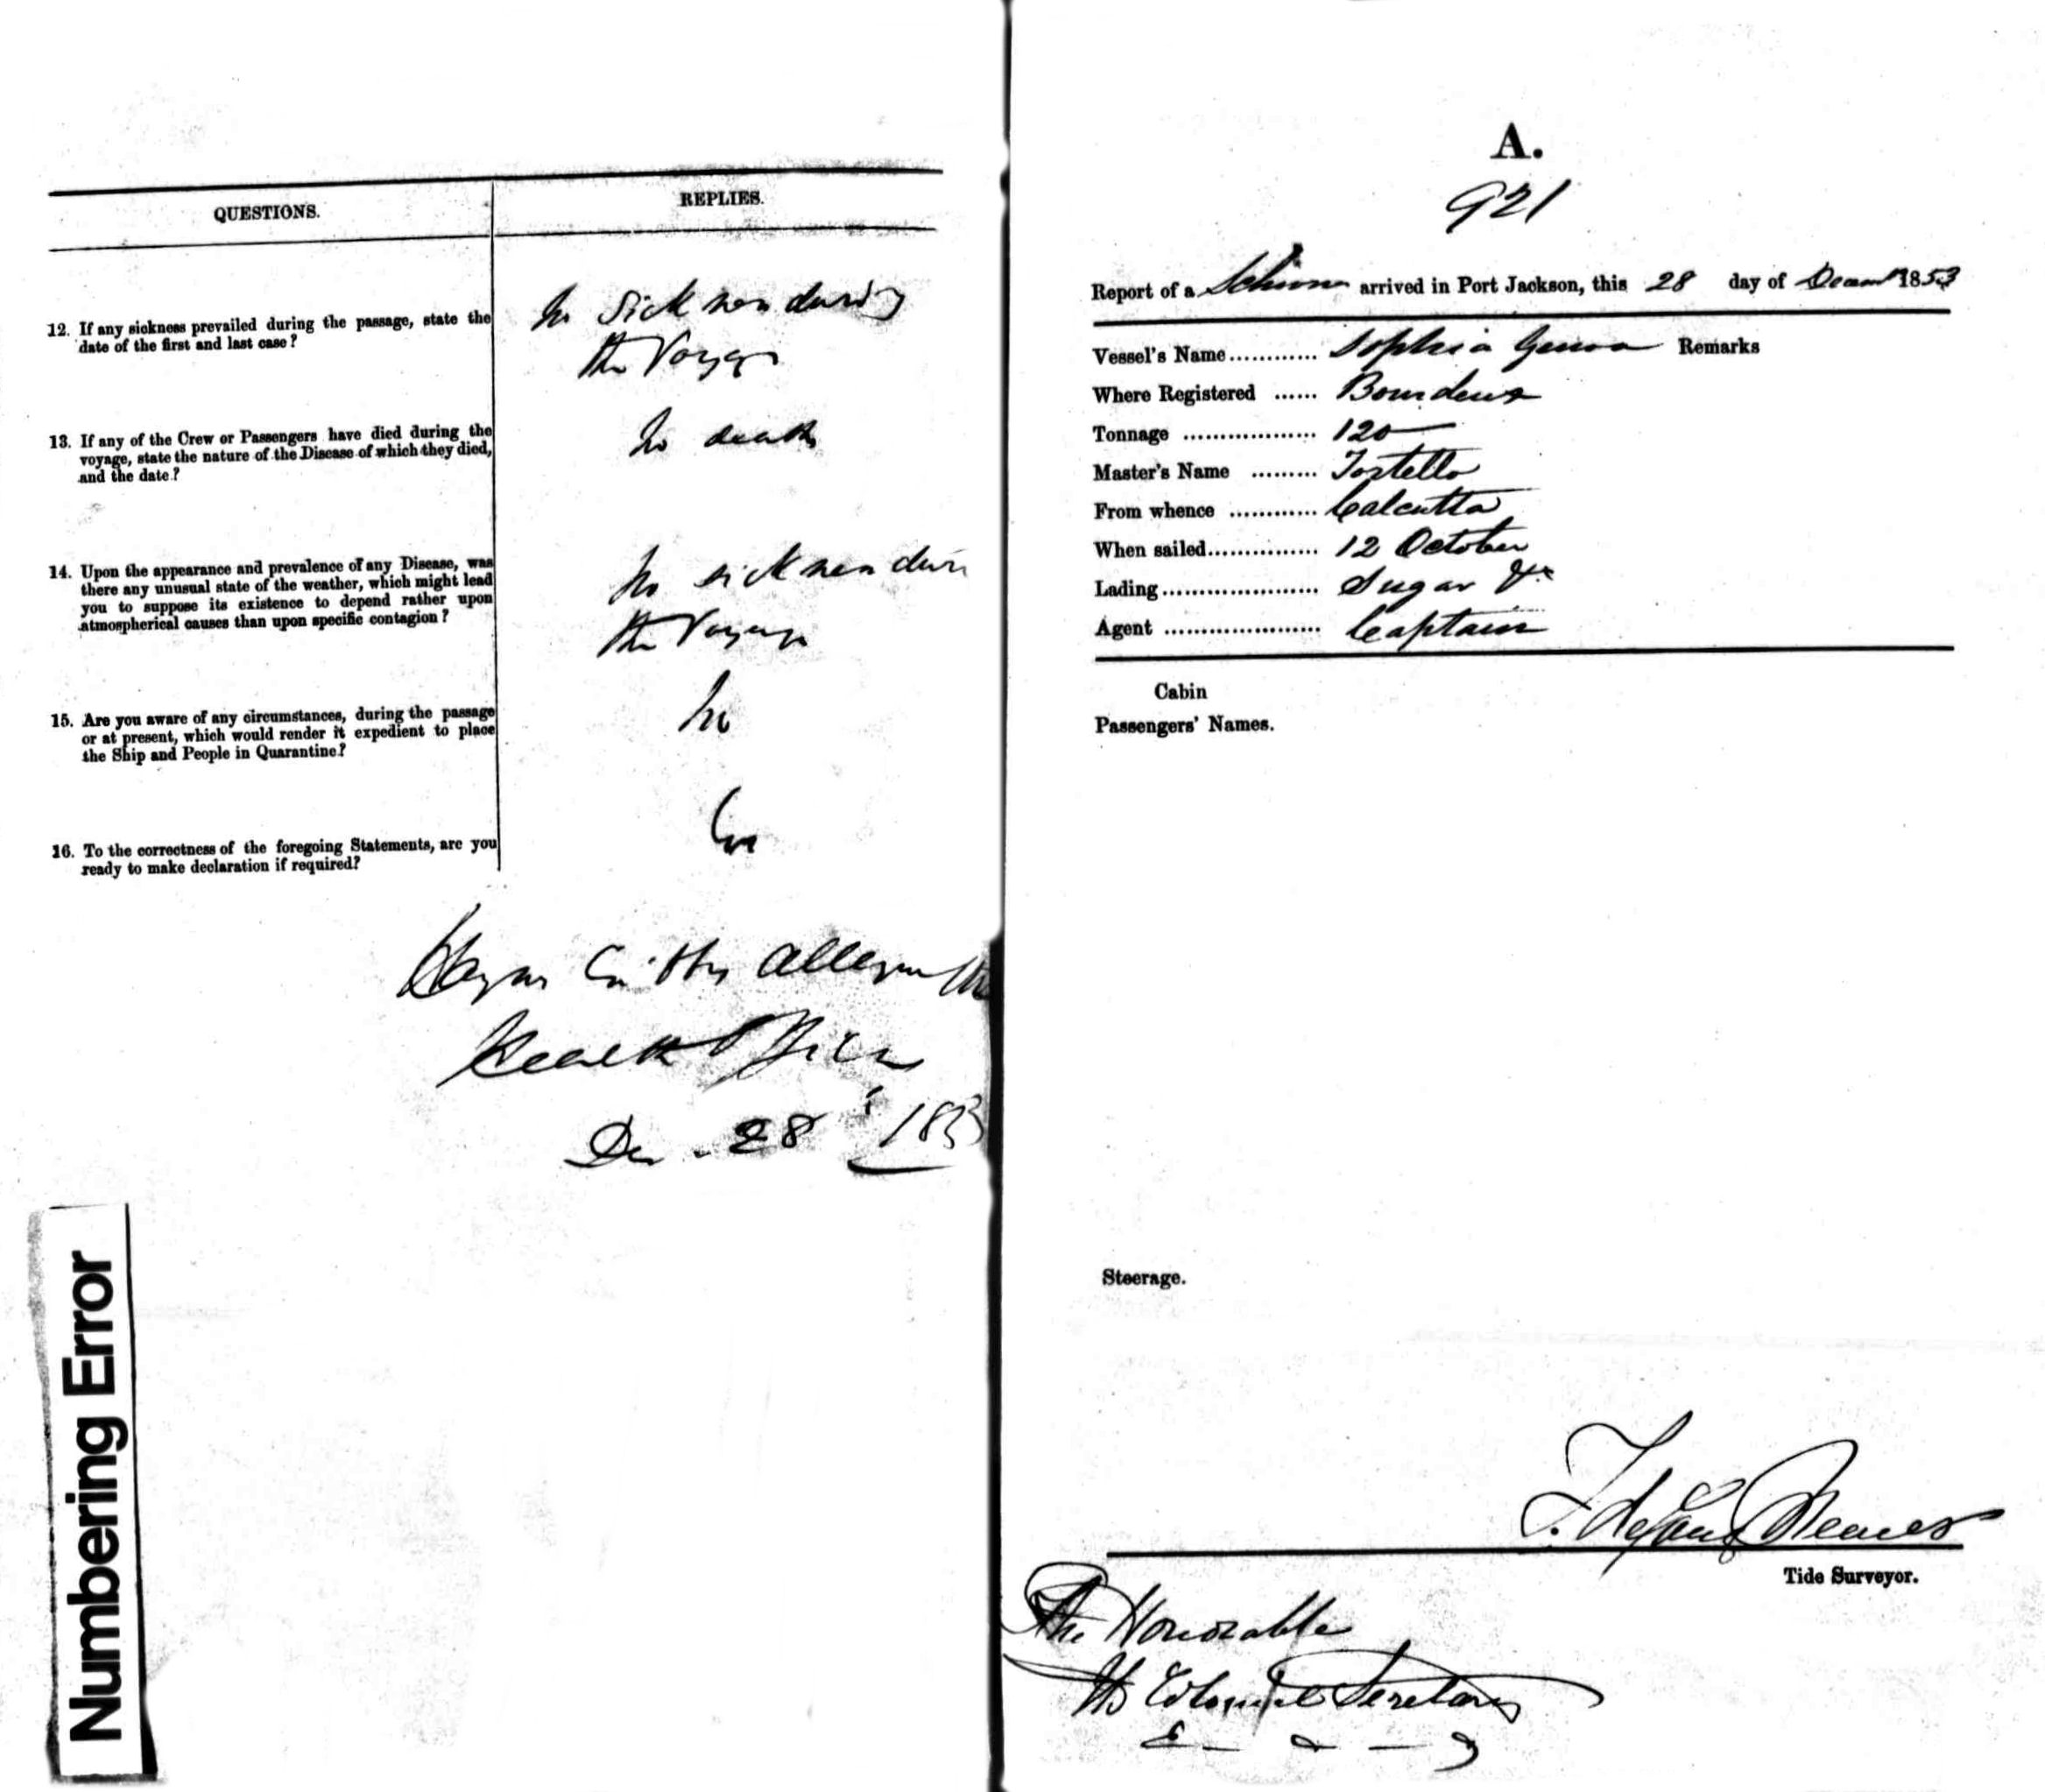 QUESTIONS.
REPLIES.
12. If any sickness prevailed during the passage, state the
date of the first and last case?
No Sickness during
the Voyage
13. If any of the Crew or Passengers have died during the
voyage, state the nature of the Disease of which they died,
and the date?
No death
14. Upon the appearance and prevalence of any Disease, was
there any unusual state of the weather, which might lead
you to suppose its existence to depend rather upon
atmospherical causes than upon specific contagion?
No sickness durin
the Voyage
15. Are you aware of any circumstances, during the passage
or at present, which would render it expedient to place
the Ship and People in Quarantine?
No
16. To the correctness of the foregoing Statements, are you
ready to make declaration if required?
Yes
Health Officer
Dec. 28 1853
Numbering Error
A.
921
Report of a arrived in Port Jackson, this 28 day of Decem 1853
Vessel's Name ............ Sophia Remarks
Where Registered ...... Bourdeux
Tonnage .................. 120
Master's Name ......... Tortello
From whence ............ Calcutta
When sailed ............... 12 October
Lading ...................... Sugar &c
Agent ...................... Captain
Cabin
Passengers' Names.
Steerage.
Tide Surveyor.
The Honorable
The Colonial Secretary